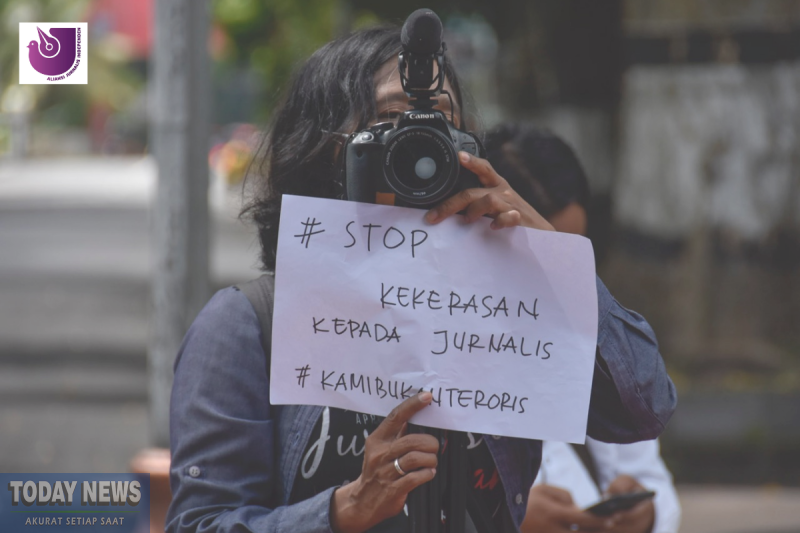 ALIANSI JURNALIS INDEPENDEN
Canon
# STOP
KEKERASAN
KEPADA JURNALIS
# KAMIBUKANTERORIS
TODAY NEWS
AKURAT SETIAP SAAT